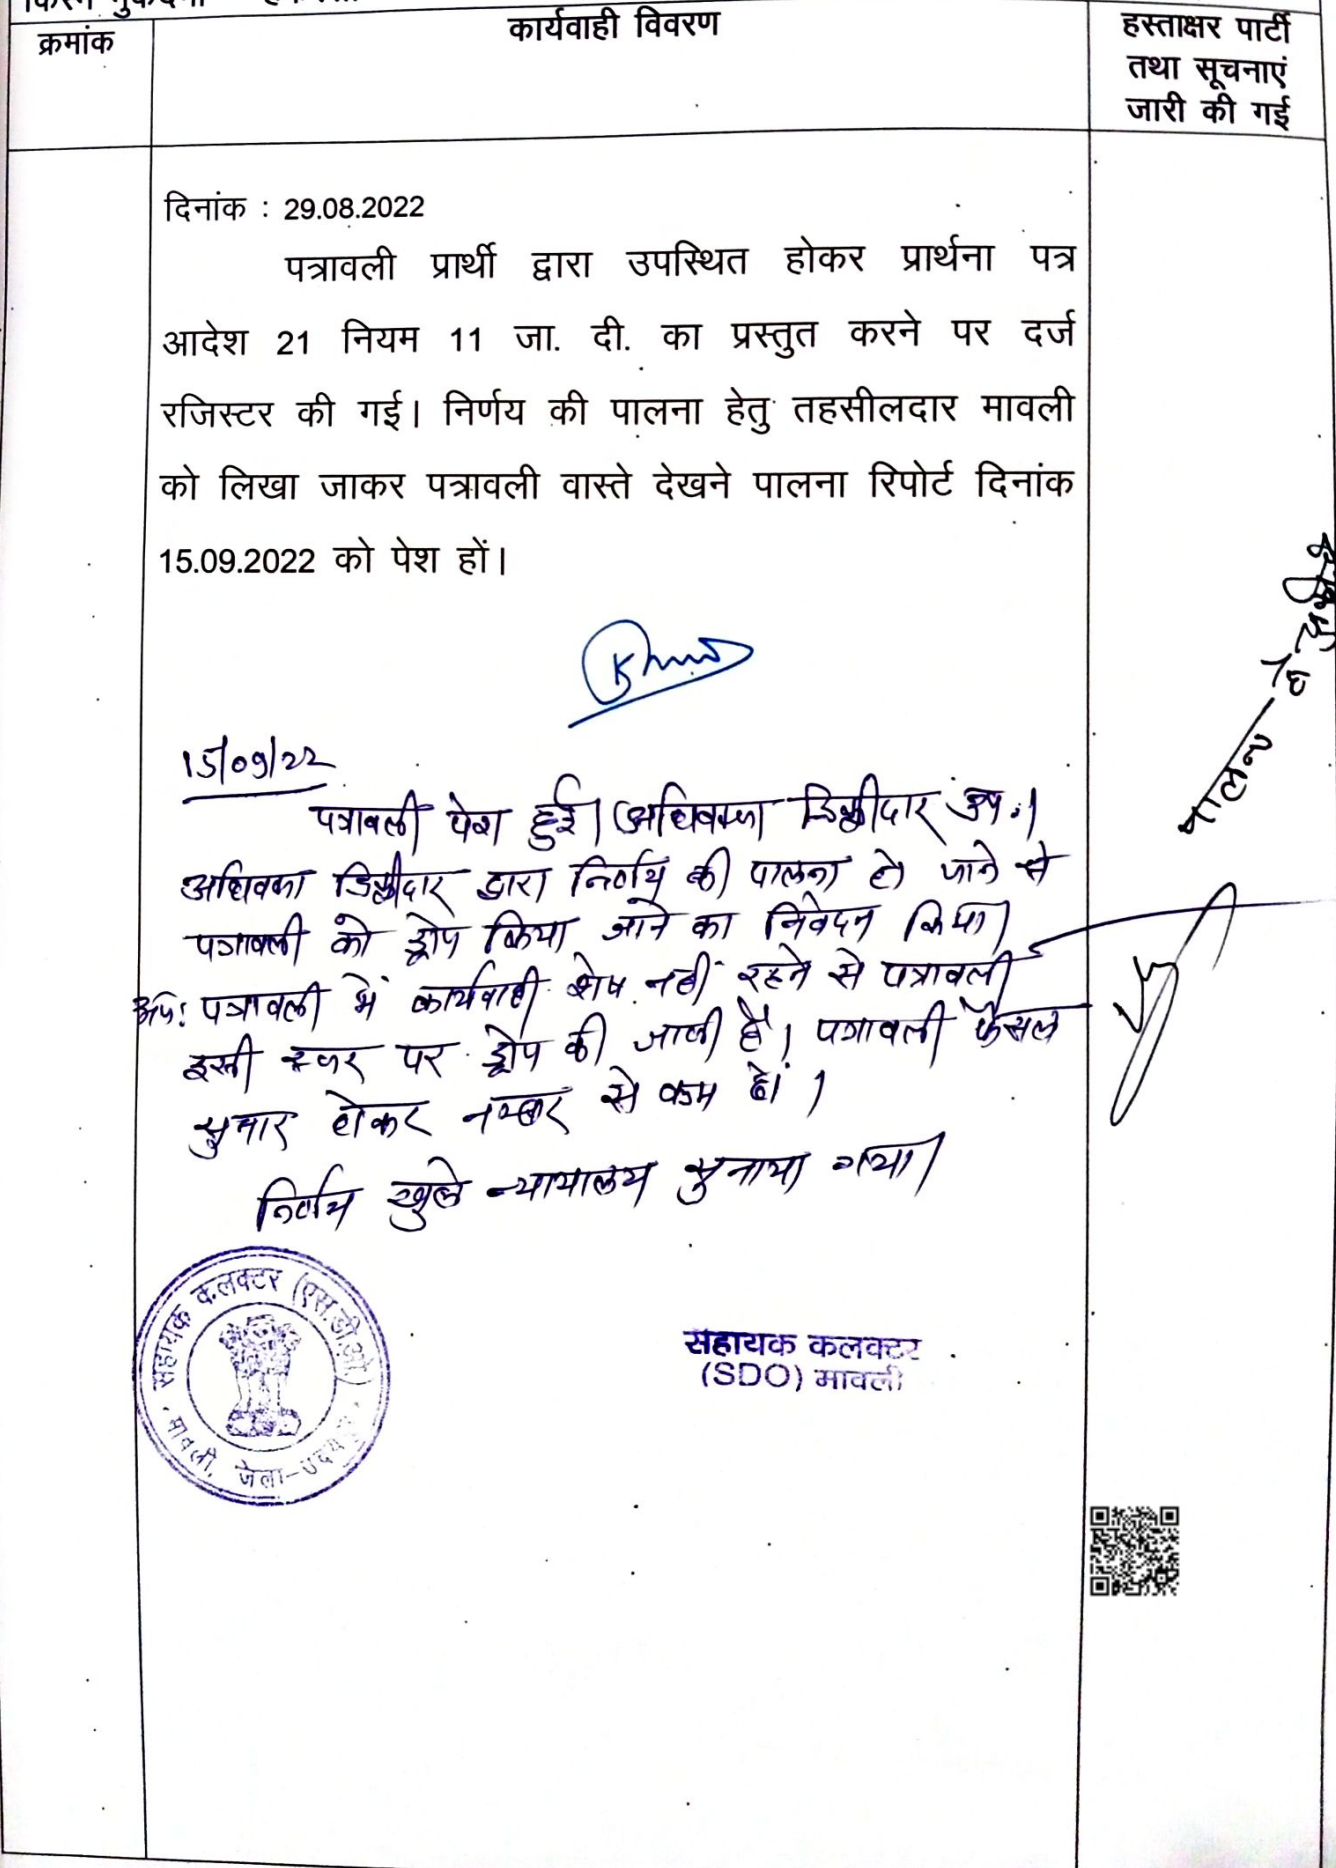 क्रमांक
कार्यवाही विवरण
हस्ताक्षर पार्टी
तथा सूचनाएं
जारी की गई
दिनांक : 29.08.2022
पत्रावली प्रार्थी द्वारा उपस्थित होकर प्रार्थना पत्र
आदेश 21 नियम 11 जा. दी. का प्रस्तुत करने पर दर्ज
रजिस्टर की गई। निर्णय की पालना हेतु तहसीलदार मावली
को लिखा जाकर पत्रावली वास्ते देखने पालना रिपोर्ट दिनांक
15.09.2022 को पेश हों।
15/09/22
पत्रावली पेश हुई। अधिवक्ता डिक्रीदार उप.।
अधिवक्ता डिक्रीदार द्वारा निर्णय की पालना हो जाने से
पत्रावली को ड्रोप किया जाने का निवेदन किया।
अतः पत्रावली में कार्यवाही शेष नहीं रहने से पत्रावली
इसी स्तर पर ड्रोप की जाती है। पत्रावली फैसल
शुमार होकर नम्बर से कम हो।
निर्णय खुले न्यायालय सुनाया गया।
पालना
सहायक कलक्टर (एस.डी.ओ)
मावली, जेला-
सहायक कलक्टर
(SDO) मावली